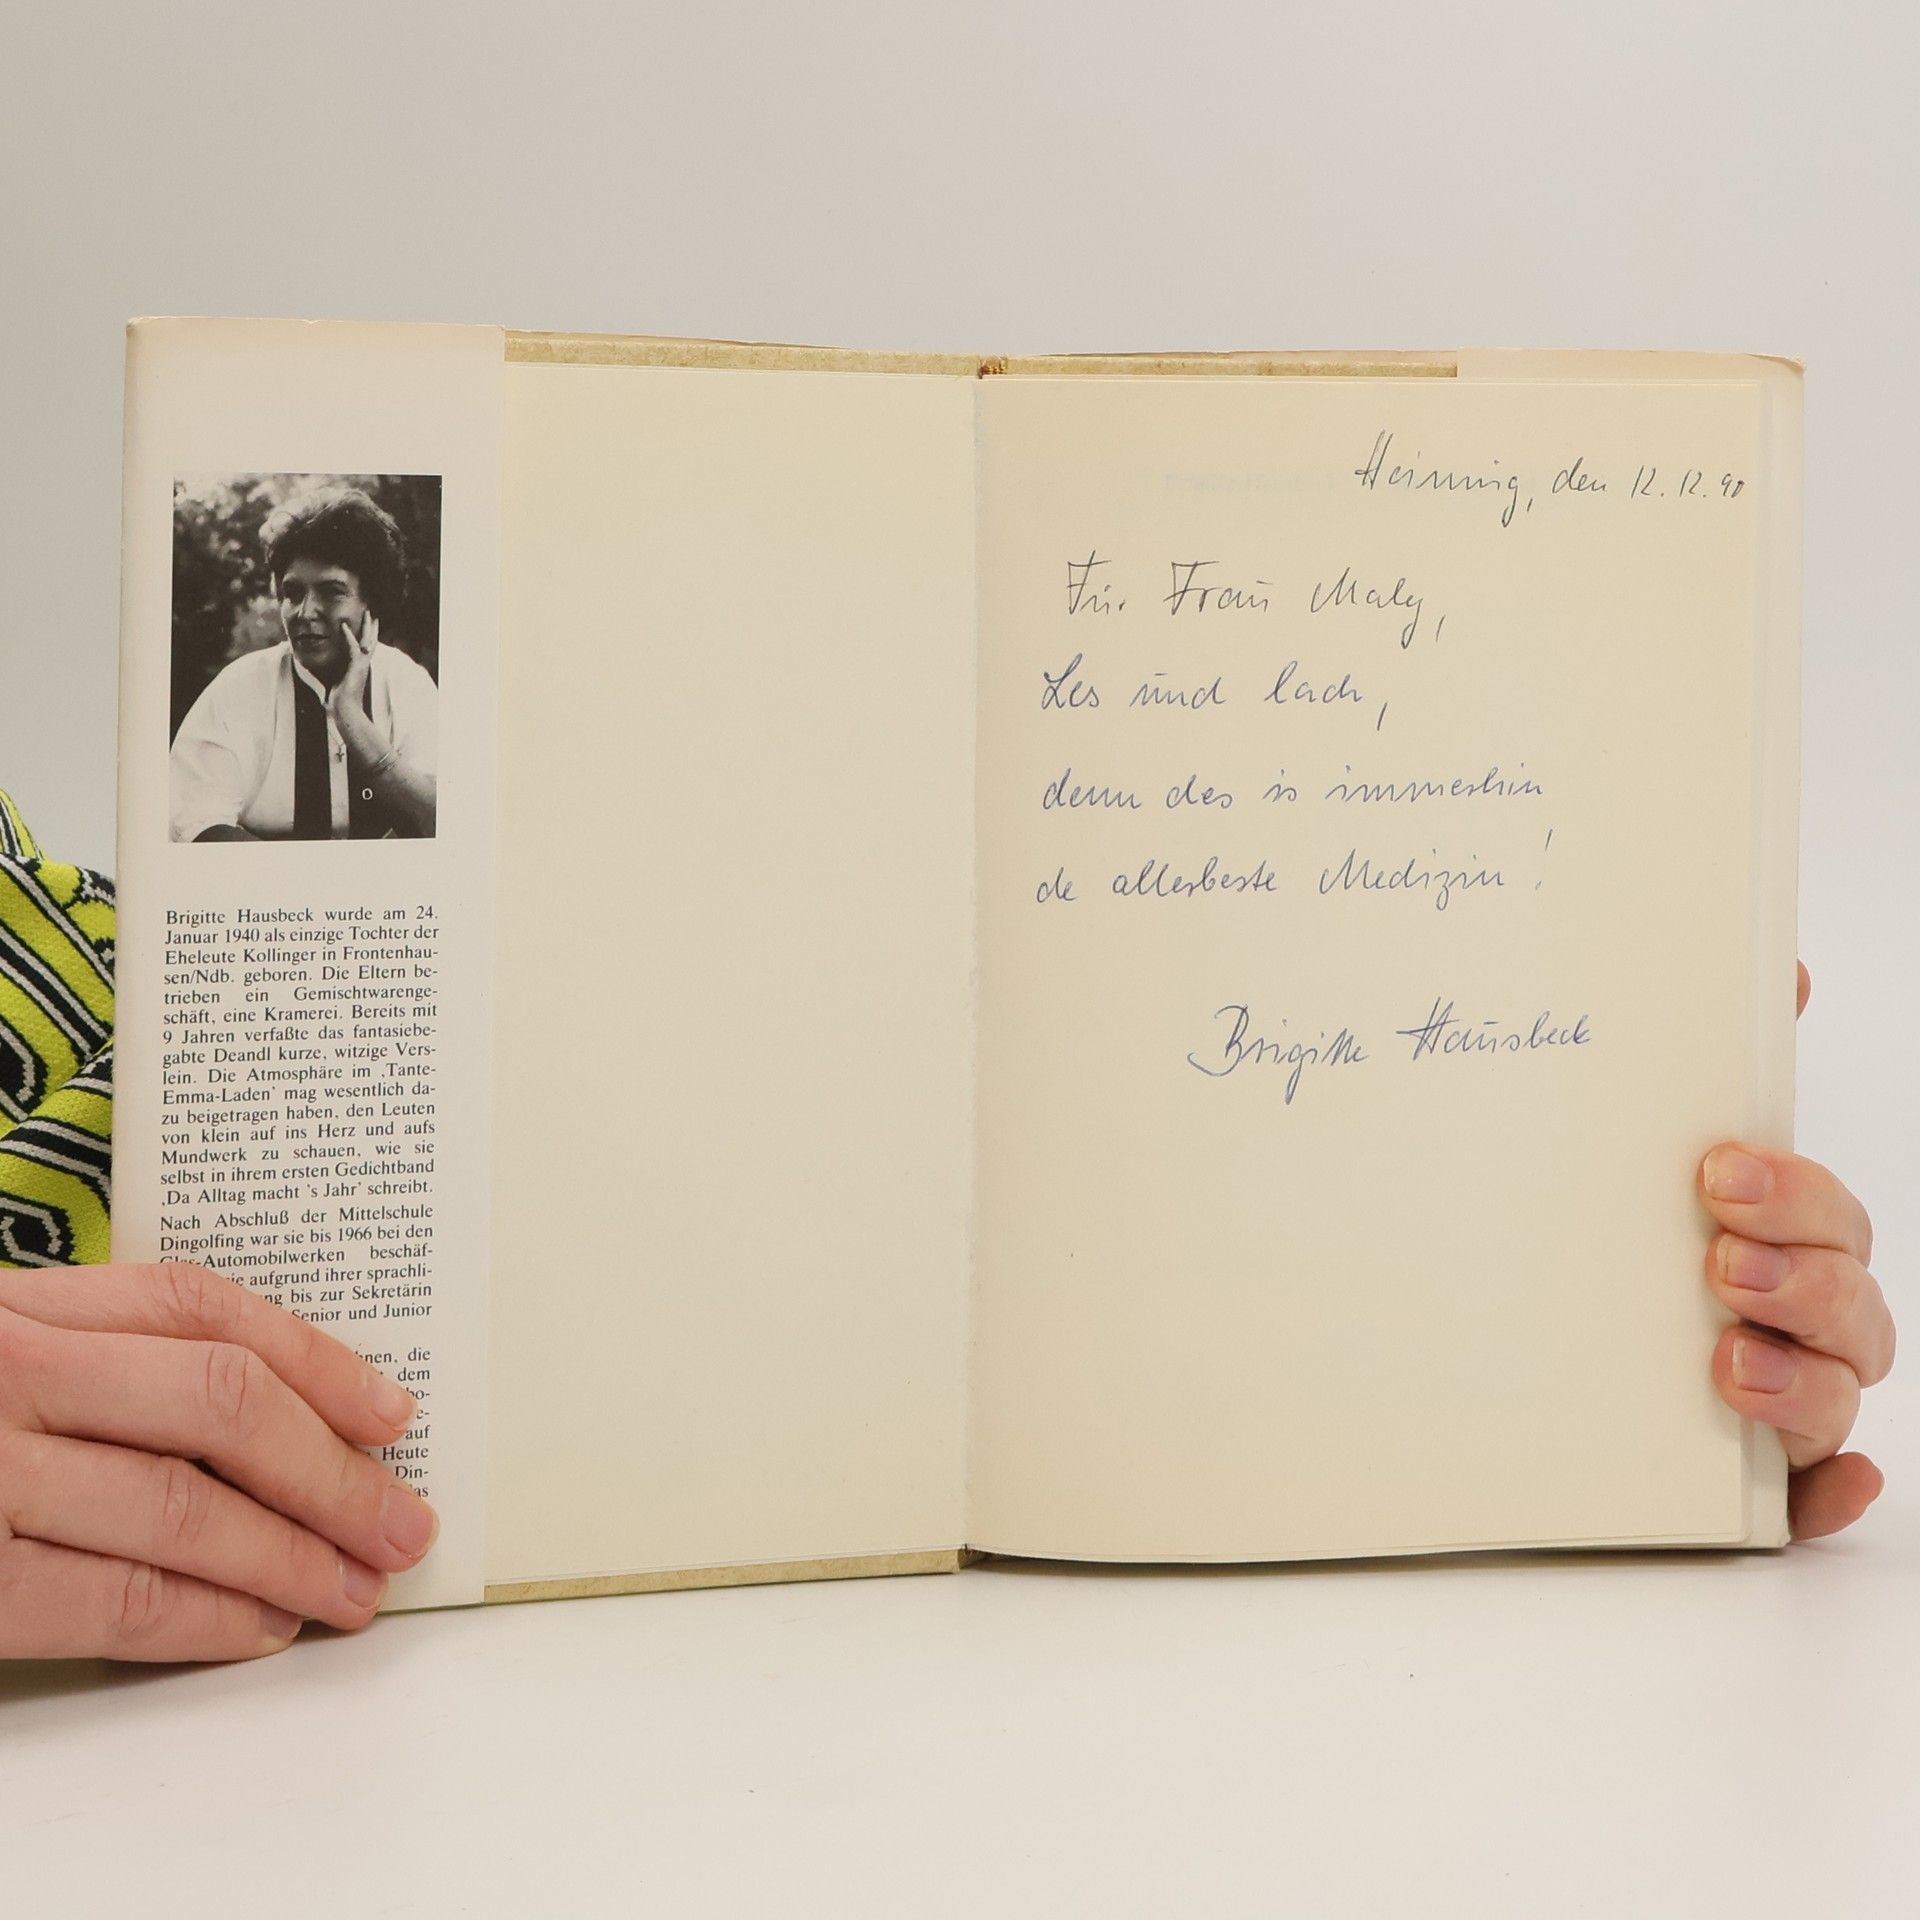 Brigitte Hausbeck wurde am 24.
Januar 1940 als einzige Tochter der
Eheleute Kollinger in Frontenhau-
sen/Ndb. geboren. Die Eltern be-
trieben ein Gemischtwarenge-
schäft, eine Kramerei. Bereits mit
9 Jahren verfaßte das fantasiebe-
gabte Deandl kurze, witzige Vers-
lein. Die Atmosphäre im ‚Tante-
Emma-Laden‘ mag wesentlich da-
zu beigetragen haben, den Leuten
von klein auf ins Herz und aufs
Mundwerk zu schauen, wie sie
selbst in ihrem ersten Gedichtband
‚Da Alltag macht 's Jahr‘ schreibt.
Nach Abschluß der Mittelschule
Dingolfing war sie bis 1966 bei den
Glas-Automobilwerken beschäf-
sie aufgrund ihrer sprachli-
bis zur Sekretärin
Senior und Junior
die
dem
auf
Heute
Din-
Heining, den 12.12.90
Für Frau Maly,
Les und lach,
denn des is immerhin
de allerbeste Medizin!
Brigitte Hausbeck